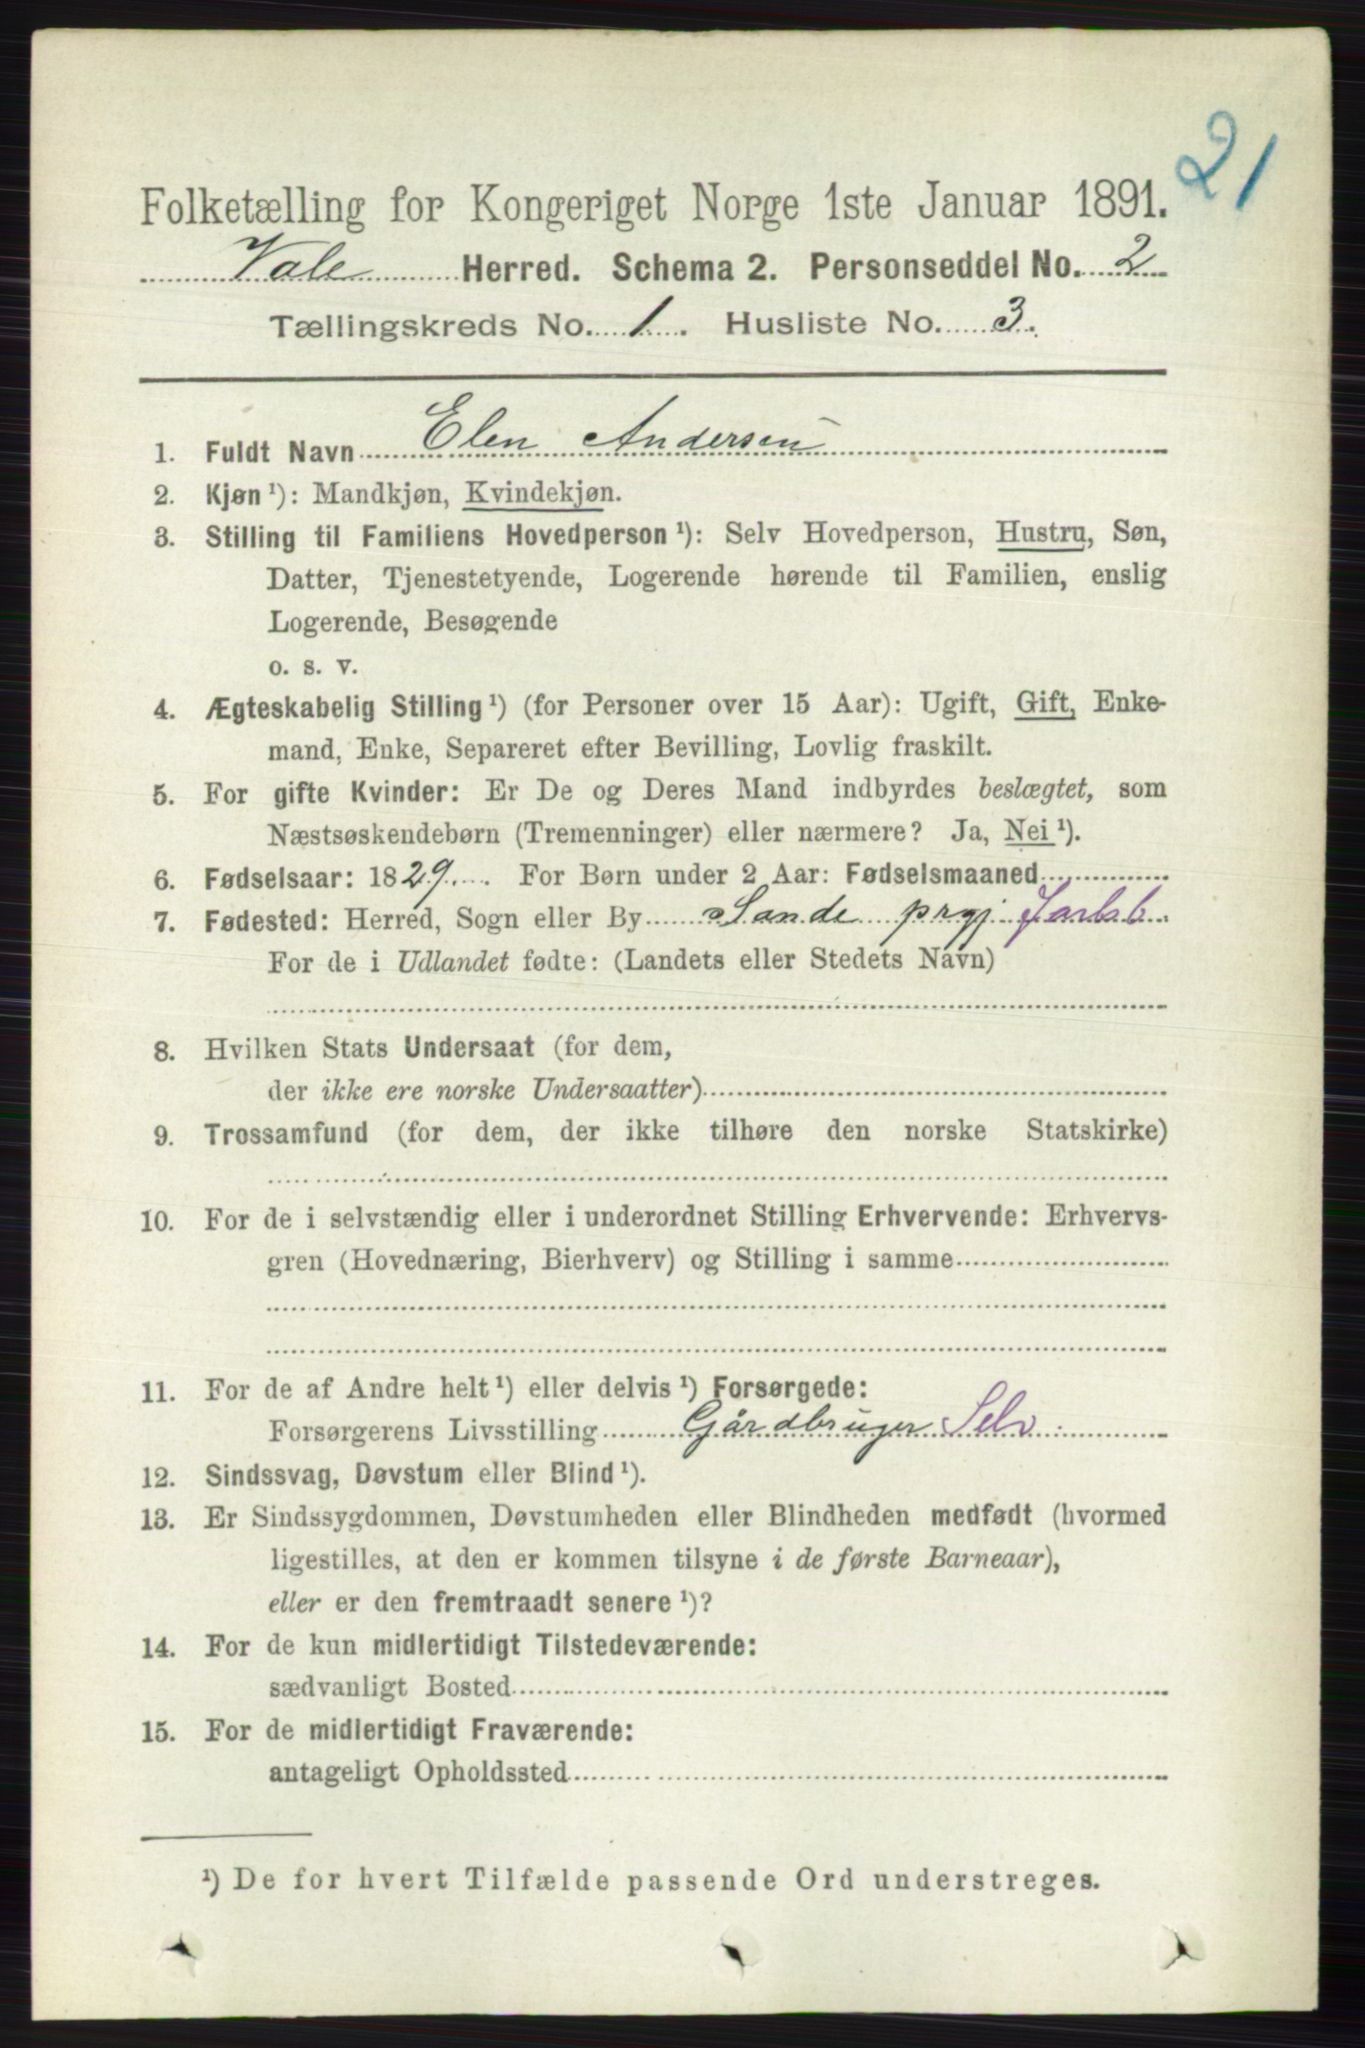 21
Folketælling for Kongeriget Norge 1ste Januar 1891.
Vale Herred. Schema 2. Personseddel No. 2
Tællingskreds No. 1. Husliste No. 3.
1. Fuldt Navn Elen Andersen
2. Kjøn ¹): Mandkjøn, Kvindekjøn.
3. Stilling til Familiens Hovedperson ¹): Selv Hovedperson, Hustru, Søn,
Datter, Tjenestetyende, Logerende hørende til Familien, enslig
Logerende, Besøgende
o. s. v.
4. Ægteskabelig Stilling ¹) (for Personer over 15 Aar): Ugift, Gift, Enke-
mand, Enke, Separeret efter Bevilling, Lovlig fraskilt.
5. For gifte Kvinder: Er De og Deres Mand indbyrdes beslægtet, som
Næstsøskendebørn (Tremenninger) eller nærmere? Ja, Nei ¹).
6. Fødselsaar: 1829. For Børn under 2 Aar: Fødselsmaaned
7. Fødested: Herred, Sogn eller By Sande prgj Jarlsb.
For de i Udlandet fødte: (Landets eller Stedets Navn)
8. Hvilken Stats Undersaat (for dem,
der ikke ere norske Undersaatter)
9. Trossamfund (for dem, der ikke tilhøre den norske Statskirke)
10. For de i selvstændig eller i underordnet Stilling Erhvervende: Erhvervs-
gren (Hovednæring, Bierhverv) og Stilling i samme
11. For de af Andre helt ¹) eller delvis ¹) Forsørgede:
Forsørgerens Livsstilling Gårdbruger Selv
12. Sindssvag, Døvstum eller Blind ¹).
13. Er Sindssygdommen, Døvstumheden eller Blindheden medfødt (hvormed
ligestilles, at den er kommen tilsyne i de første Barneaar),
eller er den fremtraadt senere ¹)?
14. For de kun midlertidigt Tilstedeværende:
sædvanligt Bosted
15. For de midlertidigt Fraværende:
antageligt Opholdssted
¹) De for hvert Tilfælde passende Ord understreges.